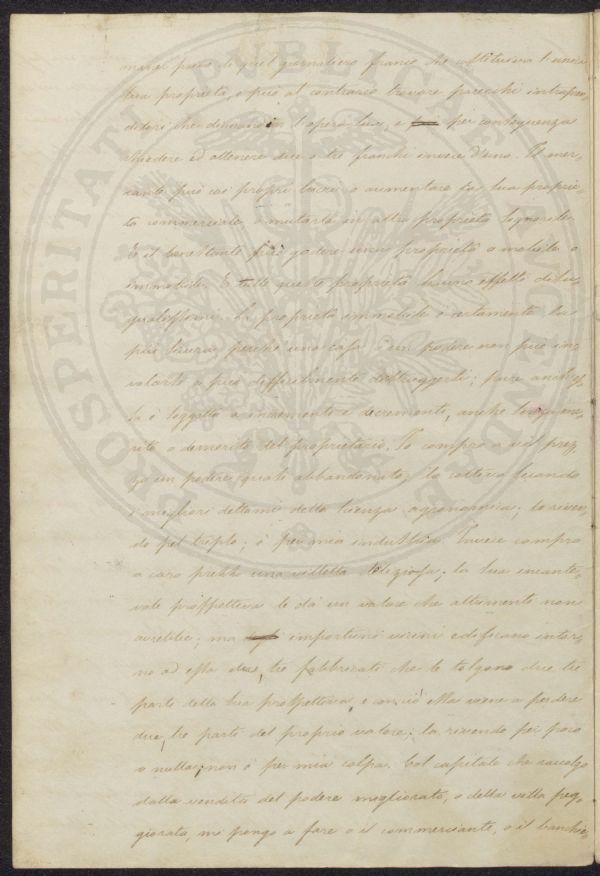 mangi pane di quel giornaliero franco che costituiva l'unica
sua proprietà, e può al contrario trovare parecchi intrapren
ditori che dimandin l'opera sua, e per conseguenza
chiedere ed ottenere due o tre franchi invece d'uno. Il mer-
cante può coi propri lucri o aumentare la sua proprie-
tà commerciale o mutarla in altra proprietà
E il benestante può godere una proprietà o mobile o
immobile. E tutte queste proprietà hanno effetti di lui
qualissimi. La proprietà immobile è certamente la
più sicura, perchè una casa o un podere non può in-
volarsi e può difficilmente distruggersi; pure anch'es-
sa è soggetta a incremento e decremento, anche senza me-
rito o demerito del proprietario. Io compro a vil prez-
zo un podere quasi abbandonato; lo coltivo secondo
i migliori dettami della scienza agronomica; lo riven-
do pel triplo; è per mia industria. Invece compro
a caro prezzo una villetta deliziosa; la sua incante-
vole prospettiva le dà un valore che altrimenti non
avrebbe; ma importuni vicini edificano intor-
no ad essa due, tre fabbricati che le tolgono due tre
parti della sua prospettiva, e con ciò essa viene a perdere
due, tre parti del proprio valore; la rivendo per poco
o nulla; non è per mia colpa. Col capitale che raccolgo
dalla vendita del podere migliorato, o della villa peg-
giorata, mi pongo a fare o il commerciante, o il banchie-
PROSPERITATI PUBLICAE AUGENDAE